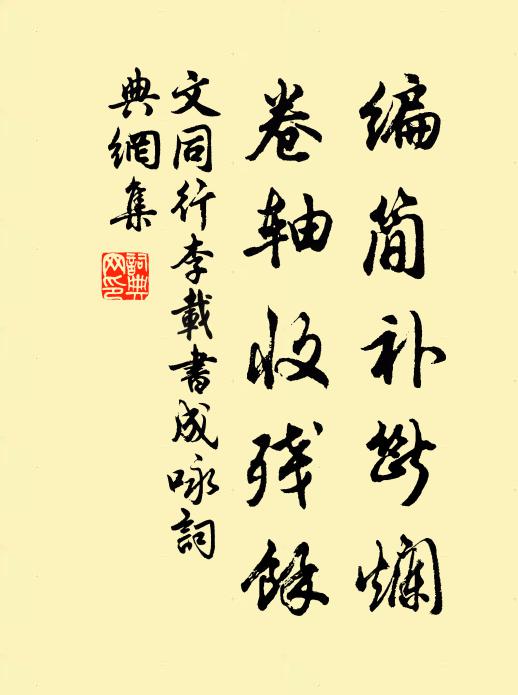 编简补断烂
卷轴收残馀
文同行李载書成咏詞
典網集
詞典網印